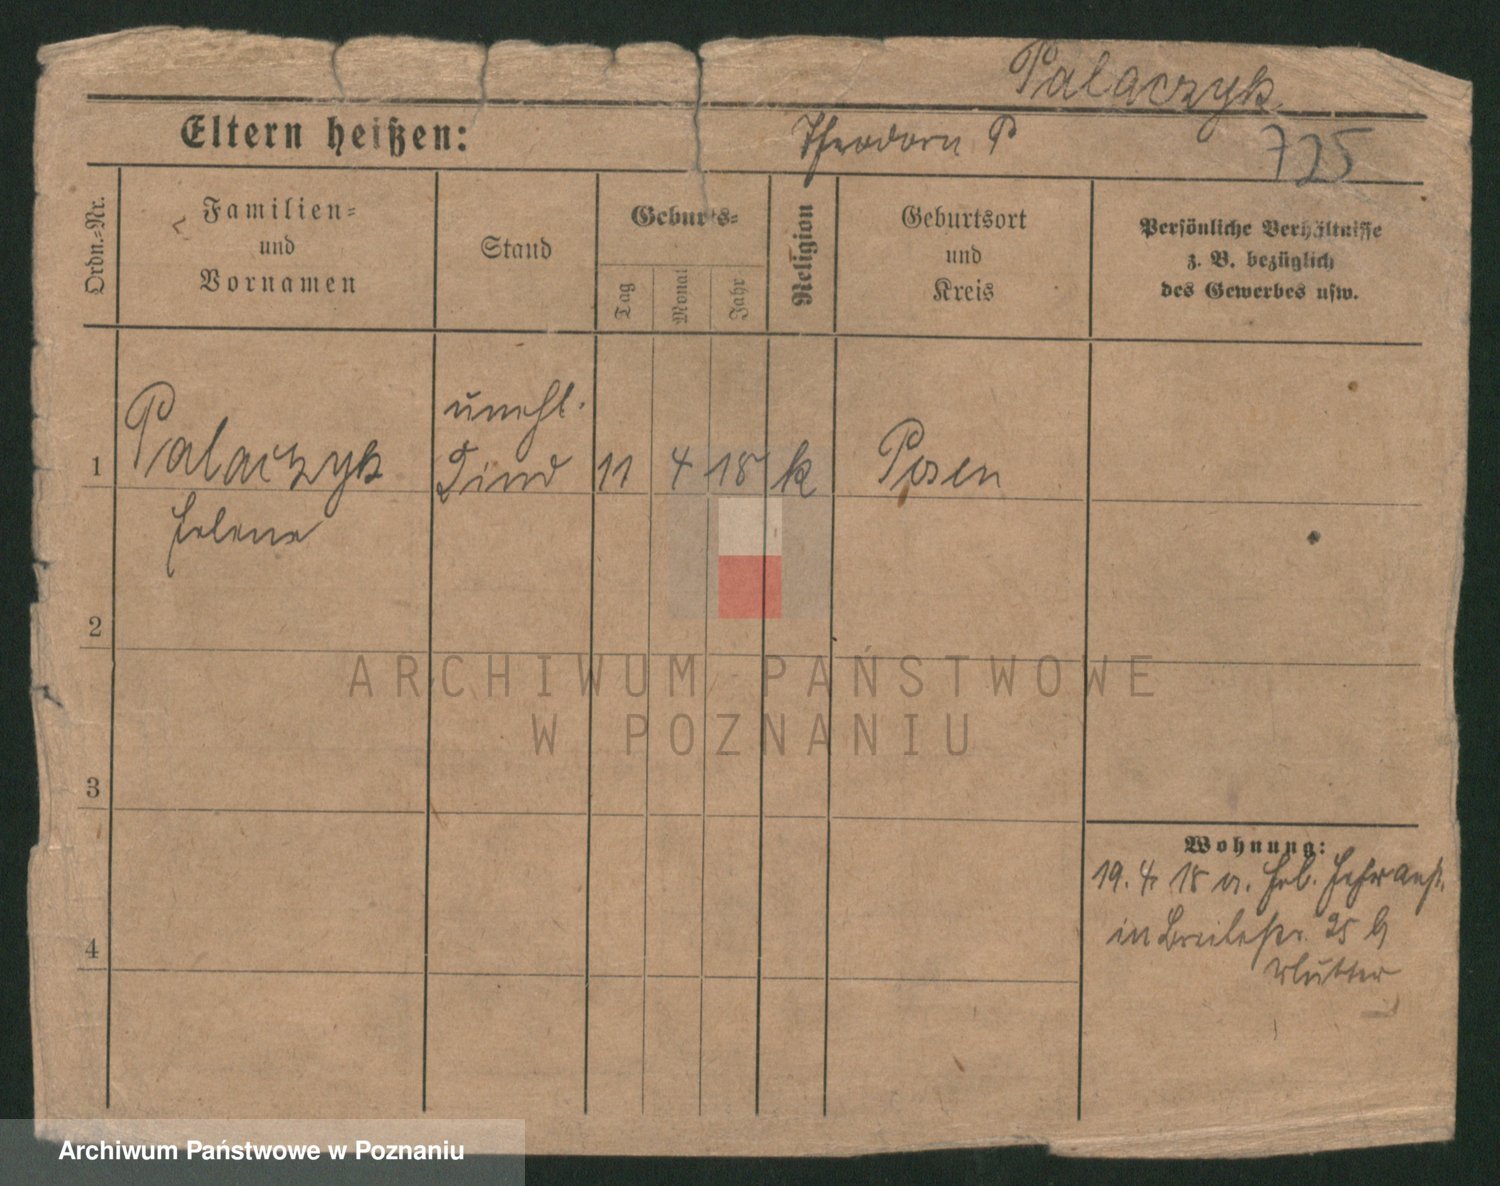 Palaczyk
Eltern heißen:
Theodora P
725
Ordn.=Nr.
Familien=
und
Vornamen
Stand
Geburts=
Tag
Monat
Jahr
Religion
Geburtsort
und
Kreis
Persönliche Verhältnisse
z. B. bezüglich
des Gewerbes usw.
1
Palaczyk
unehl.
Kind
11
4
18
k
Posen
Helene
2
ARCHIWUM PAŃSTWOWE
W POZNANIU
3
Wohnung:
19. 4. 18 a. Heb.
in Breitestr. 25 b
Mutter
4
Archiwum Państwowe w Poznaniu